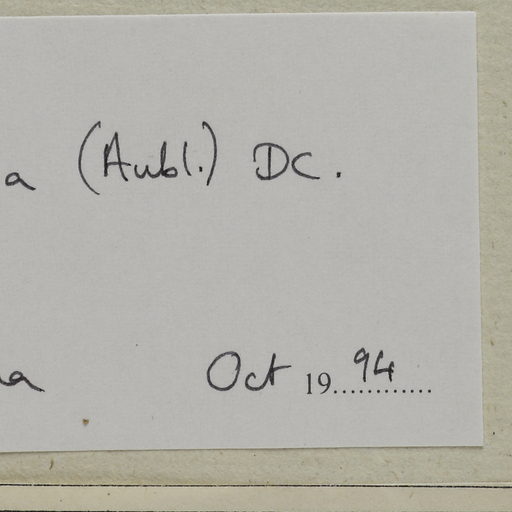 a (Aubl.) DC.
a Oct 1994